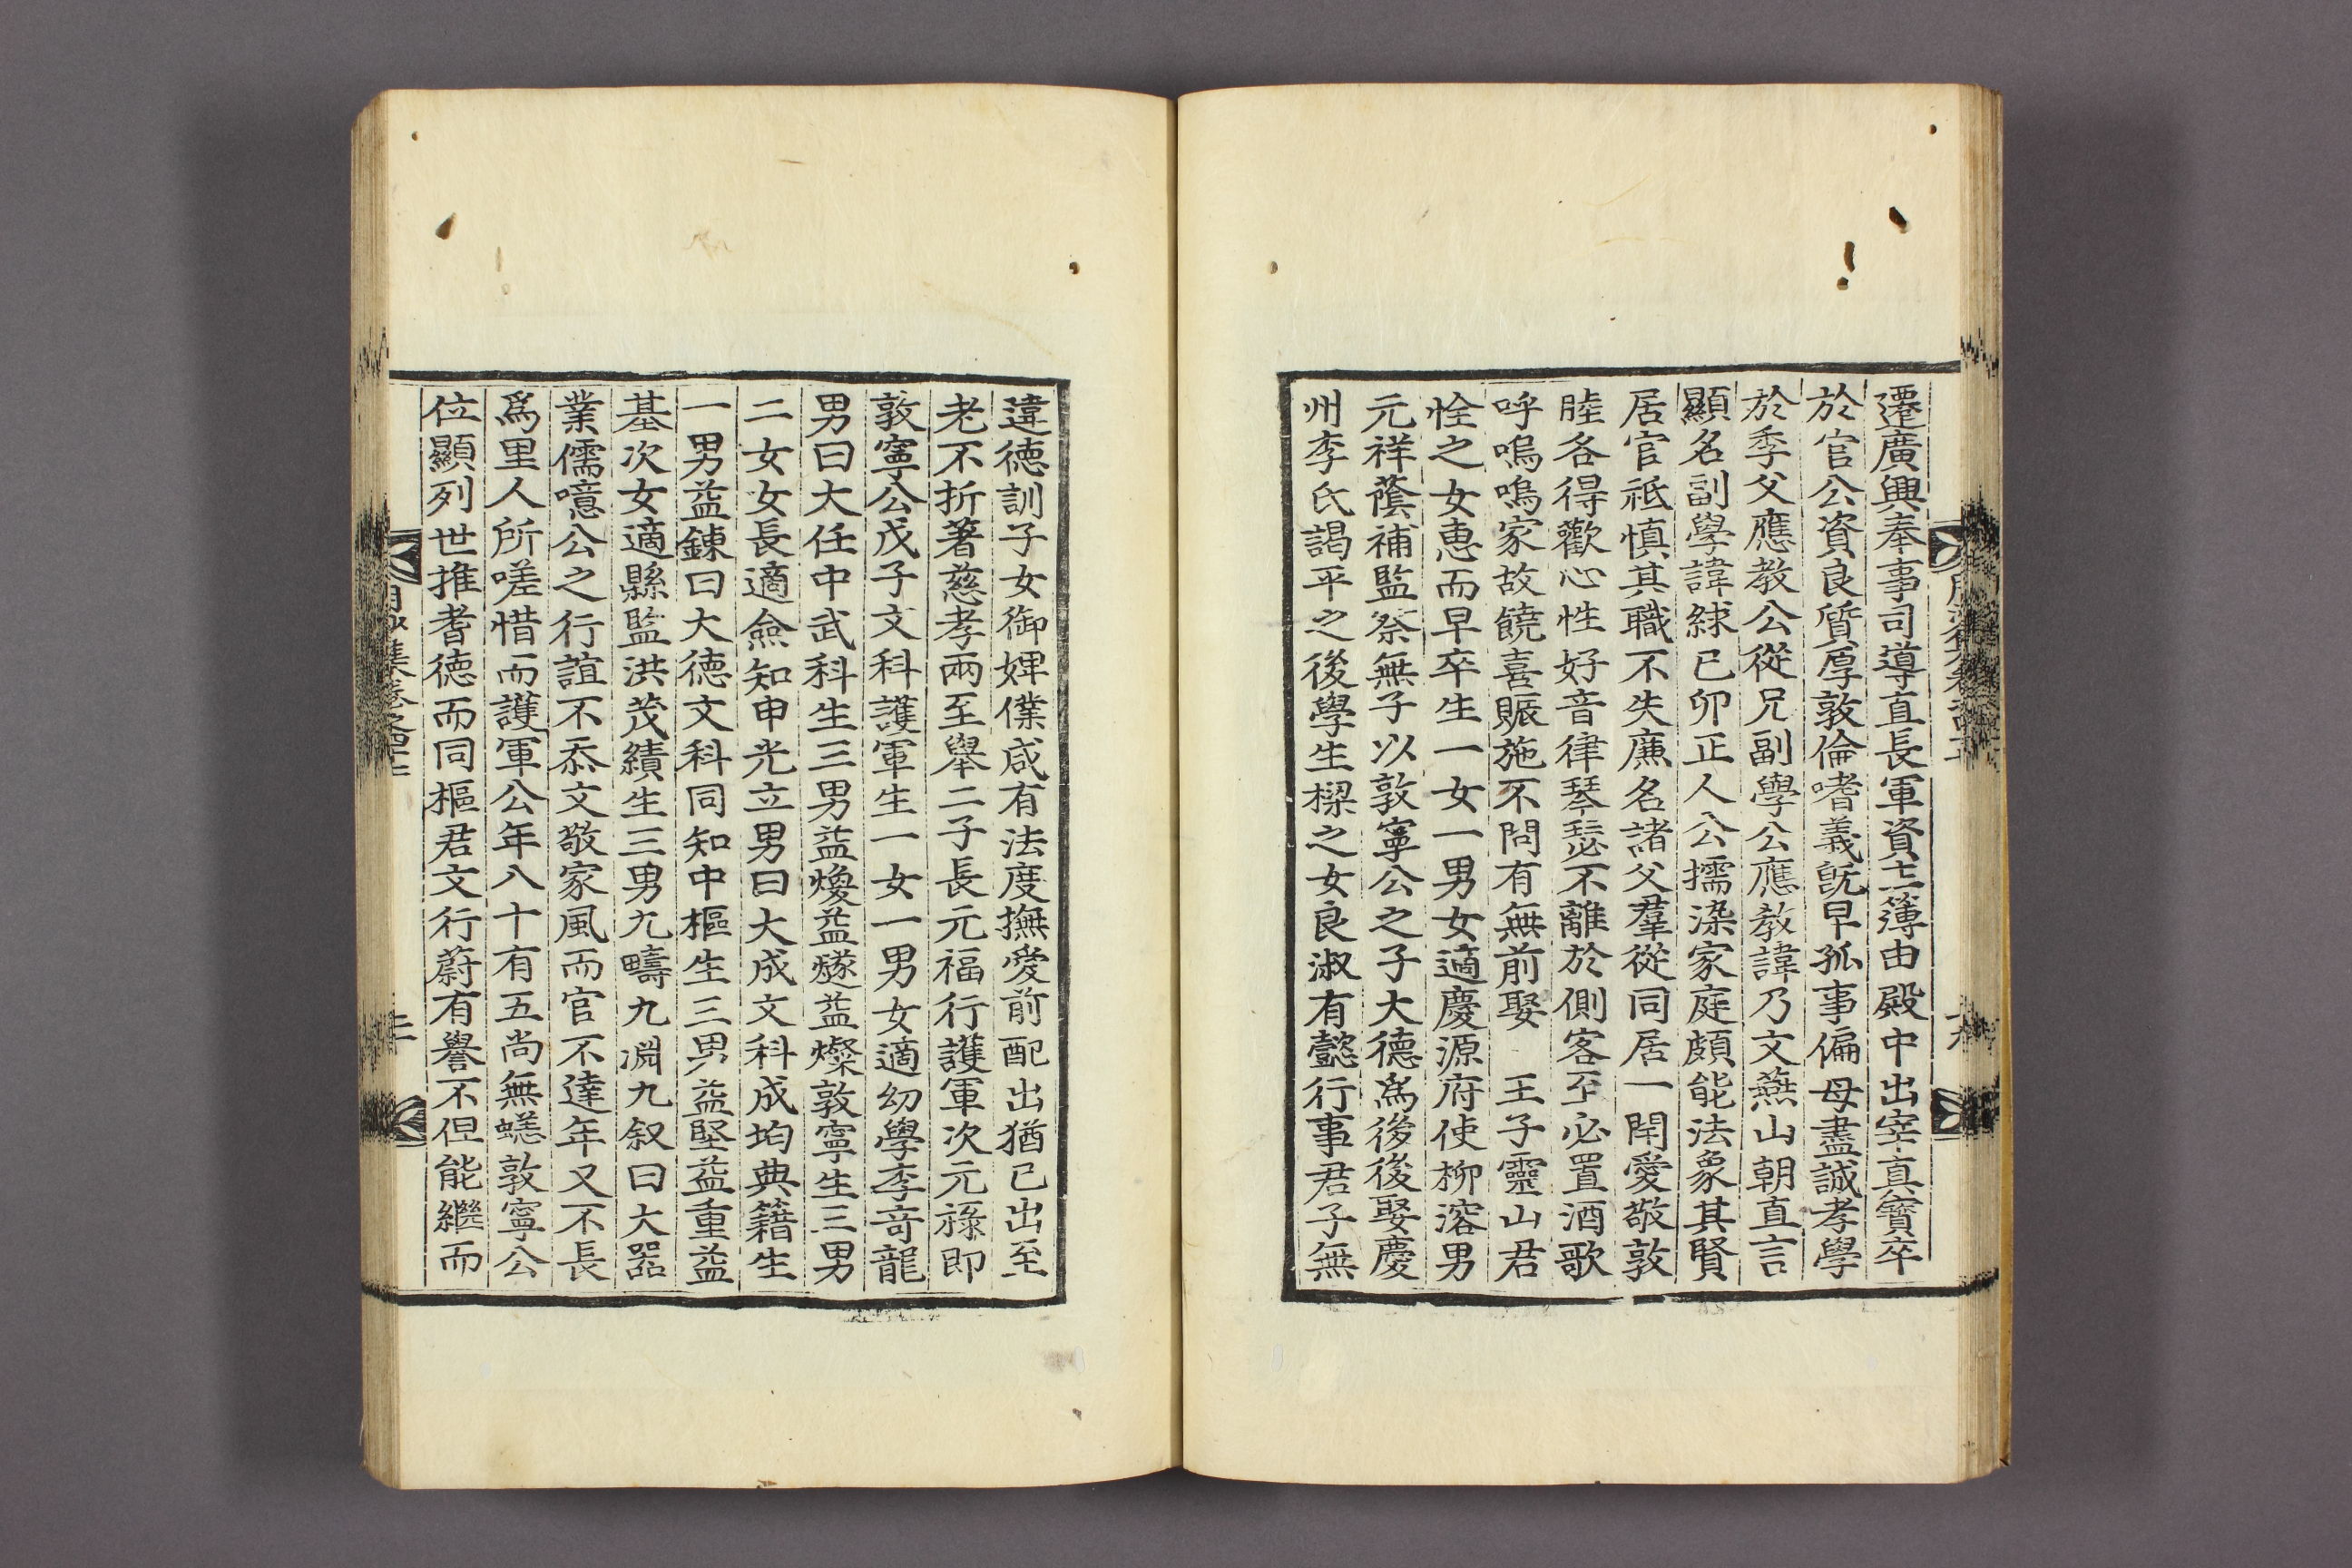 遷廣興奉事司導直長軍資主簿由殿中出宰眞寶卒
於官公資良質厚敦倫嗜義旣早孤事偏母盡誠孝學
於季父應敎公從兄副學公應敎諱乃文燕山朝直言
顯名副學諱絿己卯正人公擩染家庭頗能法象其賢
居官祗愼其職不失廉名諸父羣從同居一閈愛敬敦
睦各得歡心性好音律琴瑟不離於側客至必置酒歌
呼嗚嗚家故饒喜賑施不問有無前娶 王子靈山君
恮之女惠而早卒生一女一男女適慶源府使柳溶男
元祥蔭補監祭無子以敦寧公之子大德爲後後娶慶
州李氏謁平之後學生樑之女良淑有懿行事君子無
違德訓子女御婢僕咸有法度撫愛前配出猶己出至
老不折著慈孝兩至舉二子長元福行護軍次元祿即
敦寧公戊子文科護軍生一女一男女適幼學李奇龍
男曰大任中武科生三男益煥益燧益燦敦寧生三男
二女女長適僉知申光立男曰大成文科成均典籍生
一男益鍊曰大德文科同知中樞生三男益堅益重益
基次女適縣監洪茂績生三男九疇九淵九叙曰大器
業儒噫公之行誼不忝文敬家風而官不達年又不長
爲里人所嗟惜而護軍公年八十有五尚無恙敦寧公
位顯列世推耆德而同樞君文行蔚有譽不但能繼而